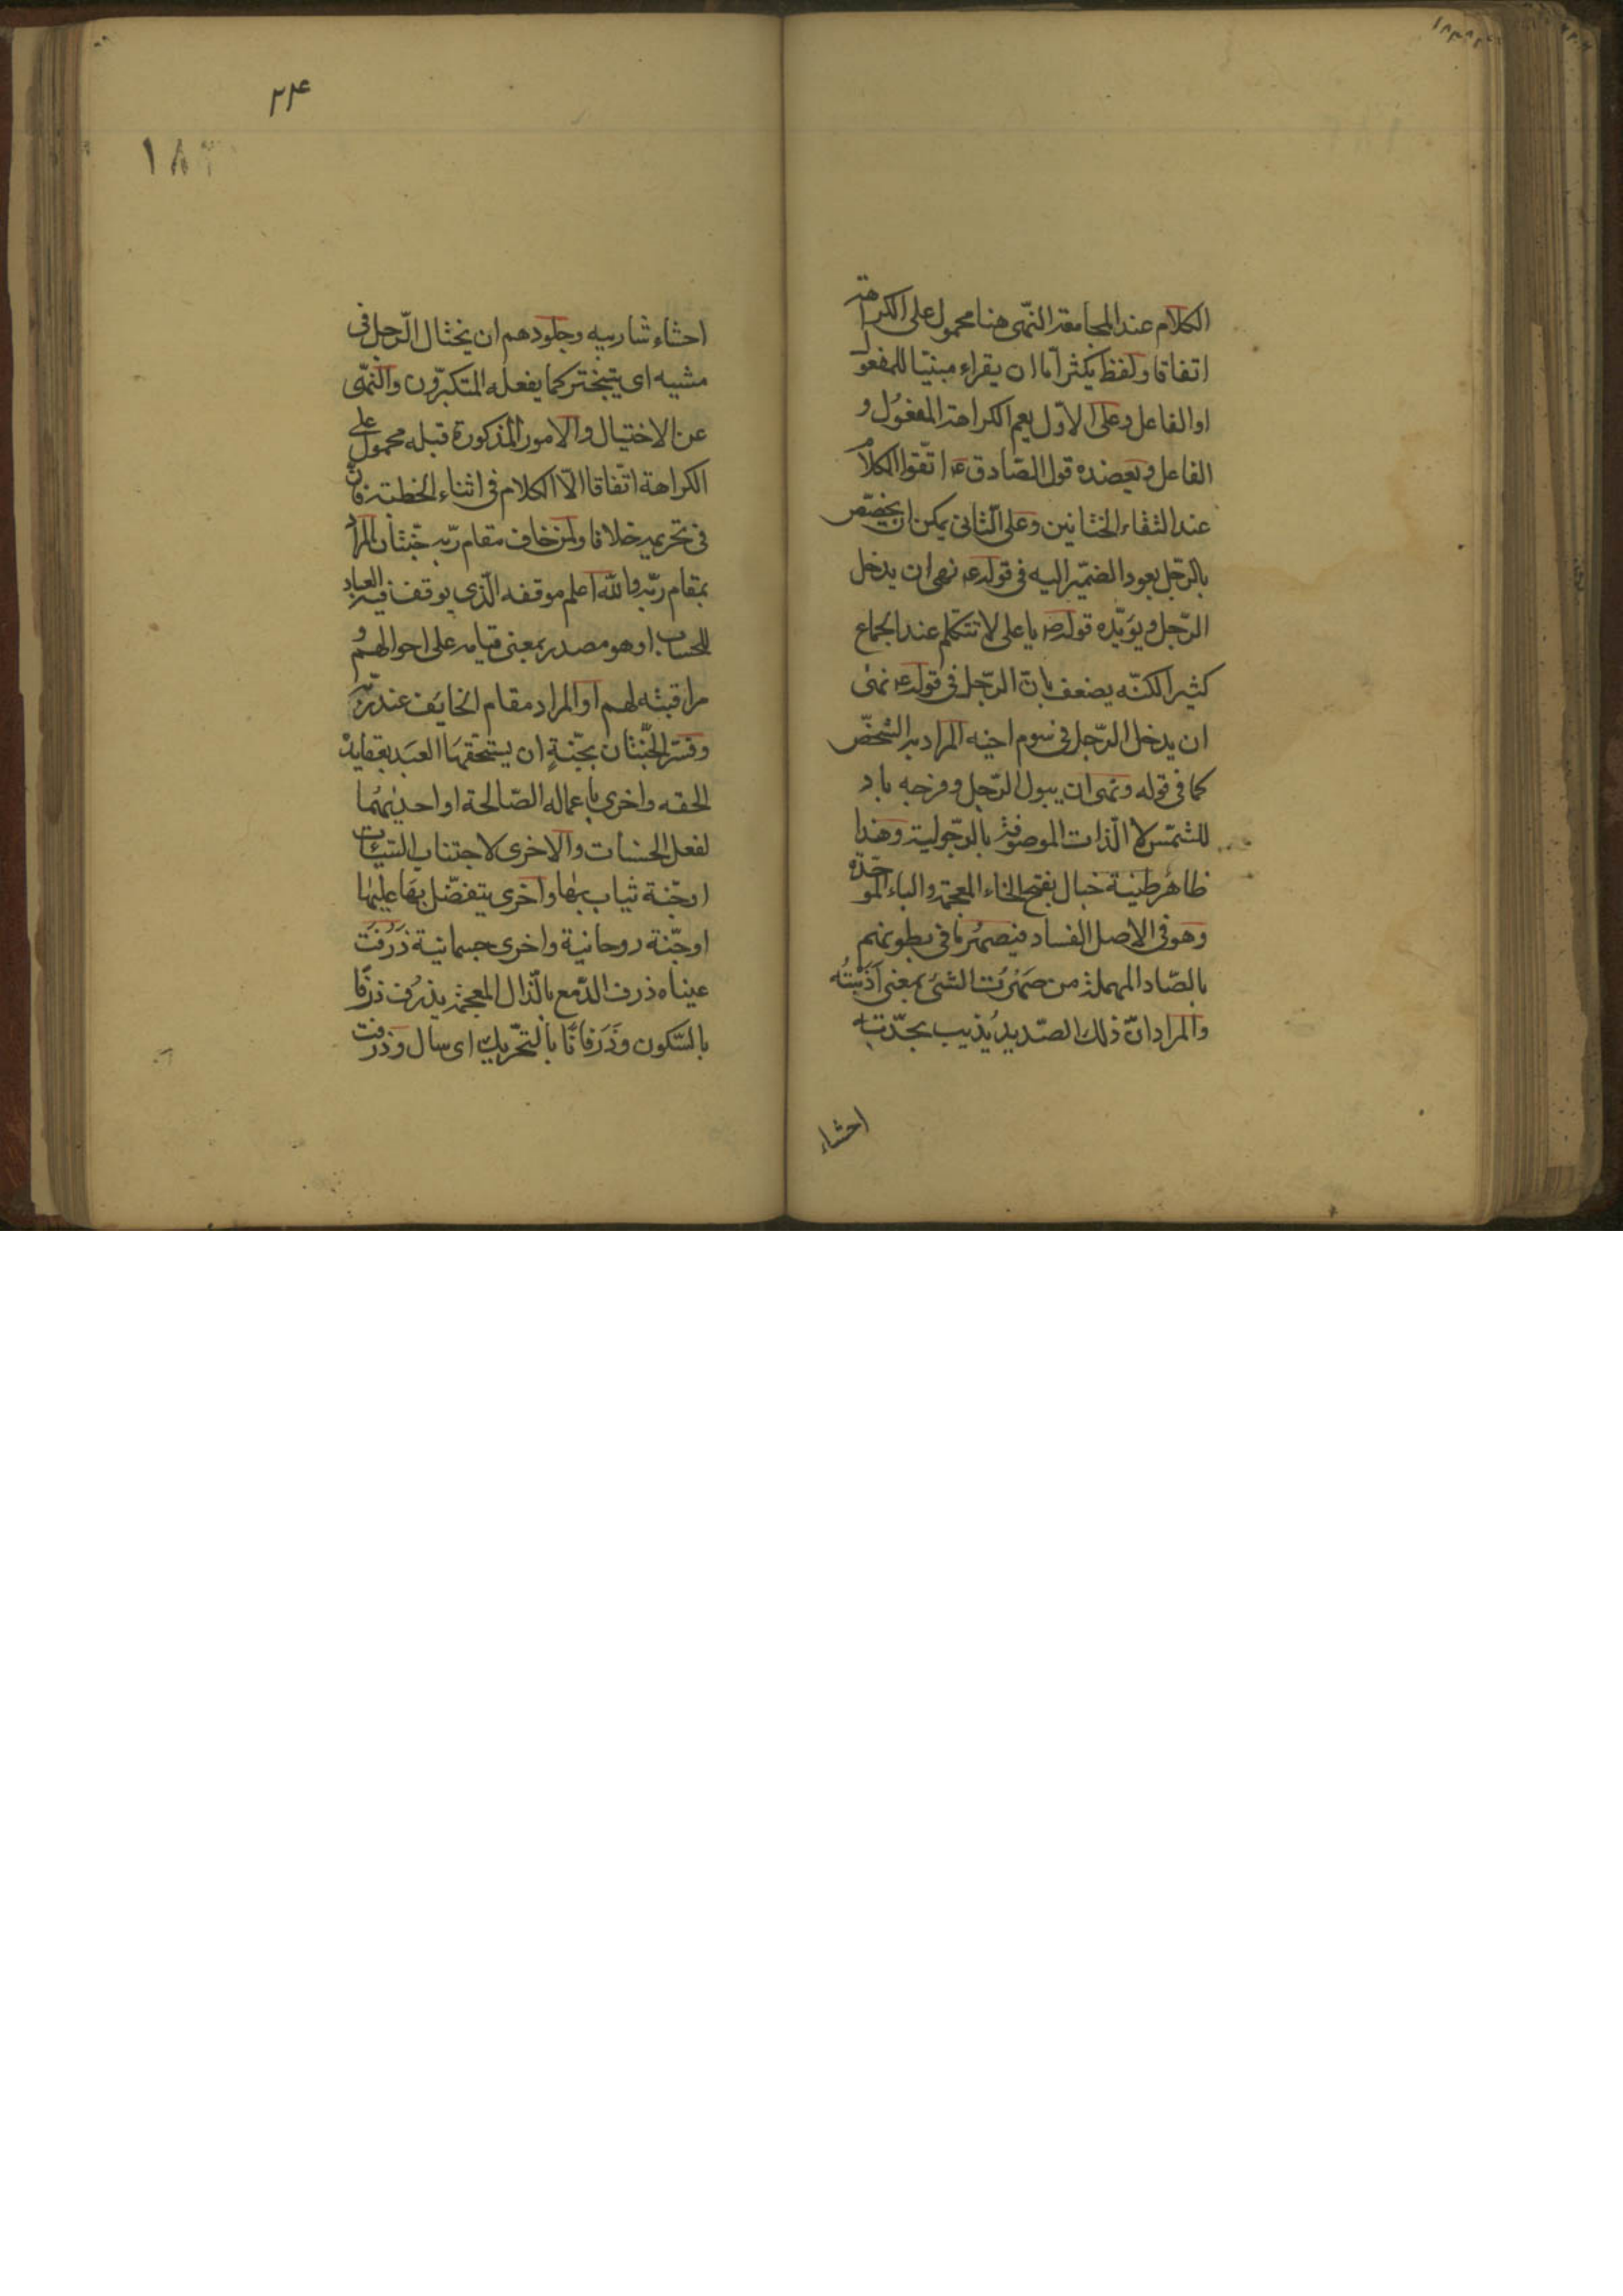 الكلام عند المجامعة النهى هنا محمول على الكراهة
اتفاقا ولفظ يكثر اما ان يقراء مبنيا للمفعول
او الفاعل وعلى الاول يعم الكراهة المفعول و
الفاعل ويعضده قول الصادق ع اتقوا الكلام
عند التقاء الختانين وعلى الثانى يمكن ان يخصص
بالرجل بعود الضمير اليه فى قوله ع نهى ان يدخل
الرجل ويؤيده قوله ص يا على لا تتكلم عند الجماع
كثيرا لكنه يضعف بان الرجل فى قوله ع نهى
ان يدخل الرجل فى سوم اخيه المراد به الشخص
كما فى قوله ونهى ان يبول الرجل وفرجه باد
للشمس لا الذات الموصوفة بالرجولية وهذا
ظاهر طينة خبال بفتح الخاء المعجمة والباء الموحدة
وهو فى الاصل الفساد فيصهر ما فى بطونهم
بالصاد المهملة من صَهَرْت الشئ بمعنى اَذَبْتُه
والمراد ان ذلك الصديد يُذيب بحدّته
احشاء
۲۴
۱۸۳
احشاء شاربيه وجلودهم ان يختال الرجل فى
مشيه اى يتبختر كما يفعله المتكبرون والنهى
عن الاختيال والامور المذكورة قبله محمول على
الكراهة اتفاقا الا الكلام فى اثناء الخطبة فان
فى تحريمه خلافا ولمن خاف مقام ربه جنتان المراد
بمقام ربه والله اعلم موقفه الذى يوقف فيه العباد
للحساب او هو مصدر بمعنى قيامه على احوالهم و
مراقبته لهم او المراد مقام الخايف عند ربه
وفسر الجنتان بجنةٍ ان يستحقها العبد بعقايده
الحقه واخرى باعماله الصالحة او احديهما
لفعل الحسنات والاخرى لاجتناب السيئات
او جنة يثاب بها واخرى يتفضل بها عليها
او جنة روحانية واخرى جسمانية ذَرَفَت
عيناه ذرف الدمع بالذال المعجمة يذرف ذرفًا
بالسكون وذَرَفانًا بالتحريك اى سال وذرفت